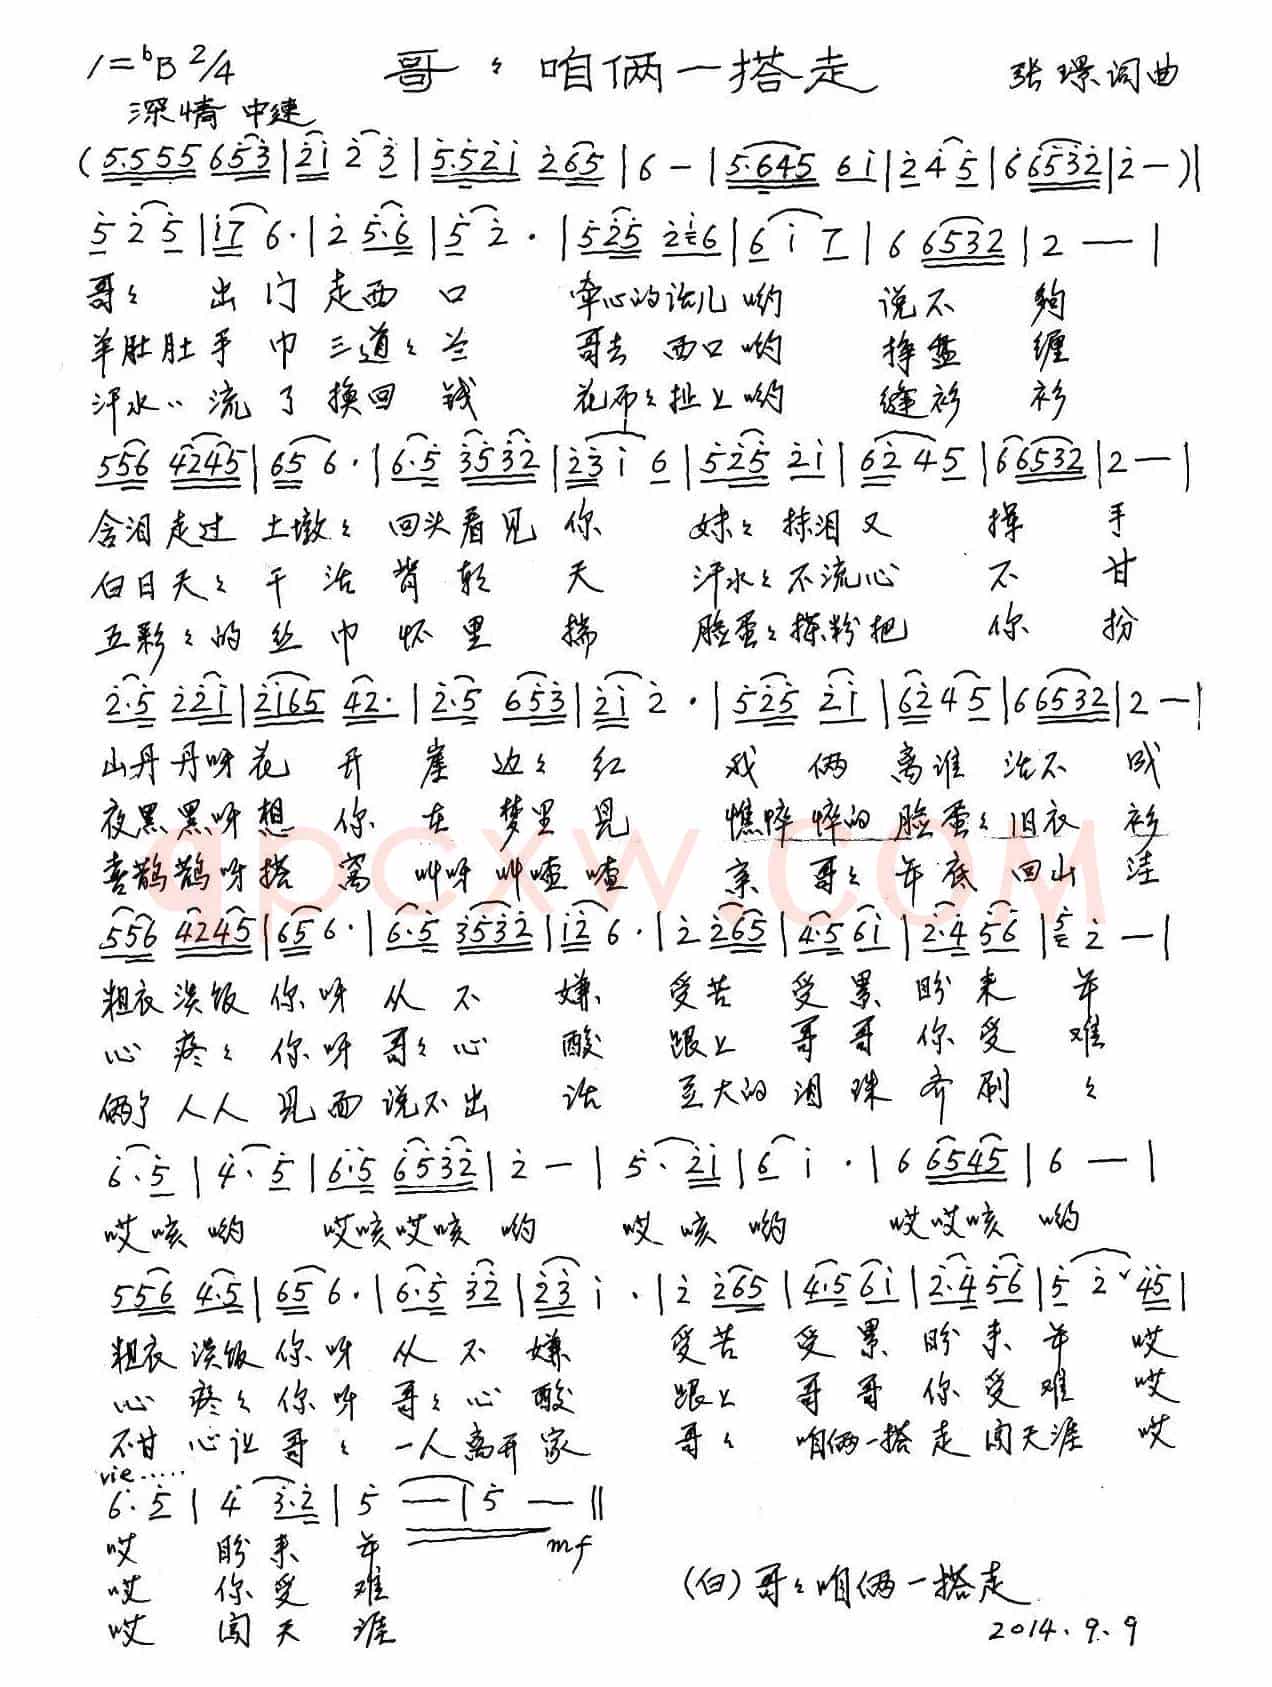 1=ᵇB 2/4 哥〻咱俩一搭走 张璟词曲
深情 中速
(5.555 653|21 2 3|5.521 265|6 -|5.645 61|2 4 5|6 6532|2 -)|
5 2 5|17 6.|2 5.6|5 2.|525 2 1 6|6 1 7|6 6532|2 - -|
哥〻 出门走西口 牵心的话儿哟 说不 夠
羊肚肚手巾三道〻兰 哥去西口哟 挣盘缠
汗水〻流了换回钱 花布〻扯上哟 缝衫衫
556 4245|65 6.|6.5 3532|23 1 6|525 21|62 45|6 6532|2 -|
含泪走过土墩〻回头看见你 妹〻抹泪又 挥 手
白日天〻干活背朝天 汗水〻不流心 不 甘
五彩〻的丝巾怀里揣 脸蛋〻搽粉把 你 扮
2.5 221|2165 42.|2.5 653|21 2.|525 21|62 45|6 6532|2 -|
山丹丹呀花 开崖边〻红 我俩离谁活不成
夜黑黑呀想你在梦里见 憔悴悴的脸蛋〻旧衣衫
喜鹊鹊呀搭窝叫呀叫喳喳 亲哥〻年底回山洼
556 4245|65 6.|6.5 3532|12 6.|2 265|4.5 61|2.4 56|5 2 -|
粗衣淡饭你呀从不 嫌 受苦受累盼来 年
心疼〻你呀哥〻心 酸 跟上哥哥你受 难
俩个人人见面说不出 话 豆大的泪珠齐刷 〻
6.5|4.5|6.5 6532|2 -|5. 21|6 1.|6 6545|6 -|
哎咳哟 哎咳哎咳哟 哎咳哟 哎哎咳哟
556 4.5|65 6.|6.5 32|23 1.|2 265|4.5 61|2.4 56|5 2 ˅ 45|
粗衣淡饭你呀从不嫌 受苦受累盼来年 哎
心疼〻你呀哥〻心酸 跟上哥哥你受难 哎
不甘心让哥〻一人离开家 哥〻咱俩一搭走闯天涯 哎
vie......
6.5|4 3.2|5 -|5 -‖
mf
哎 盼来年
哎 你受难
哎 闯天涯
(白)哥〻咱俩一搭走
2014.9.9
qpcxw.com